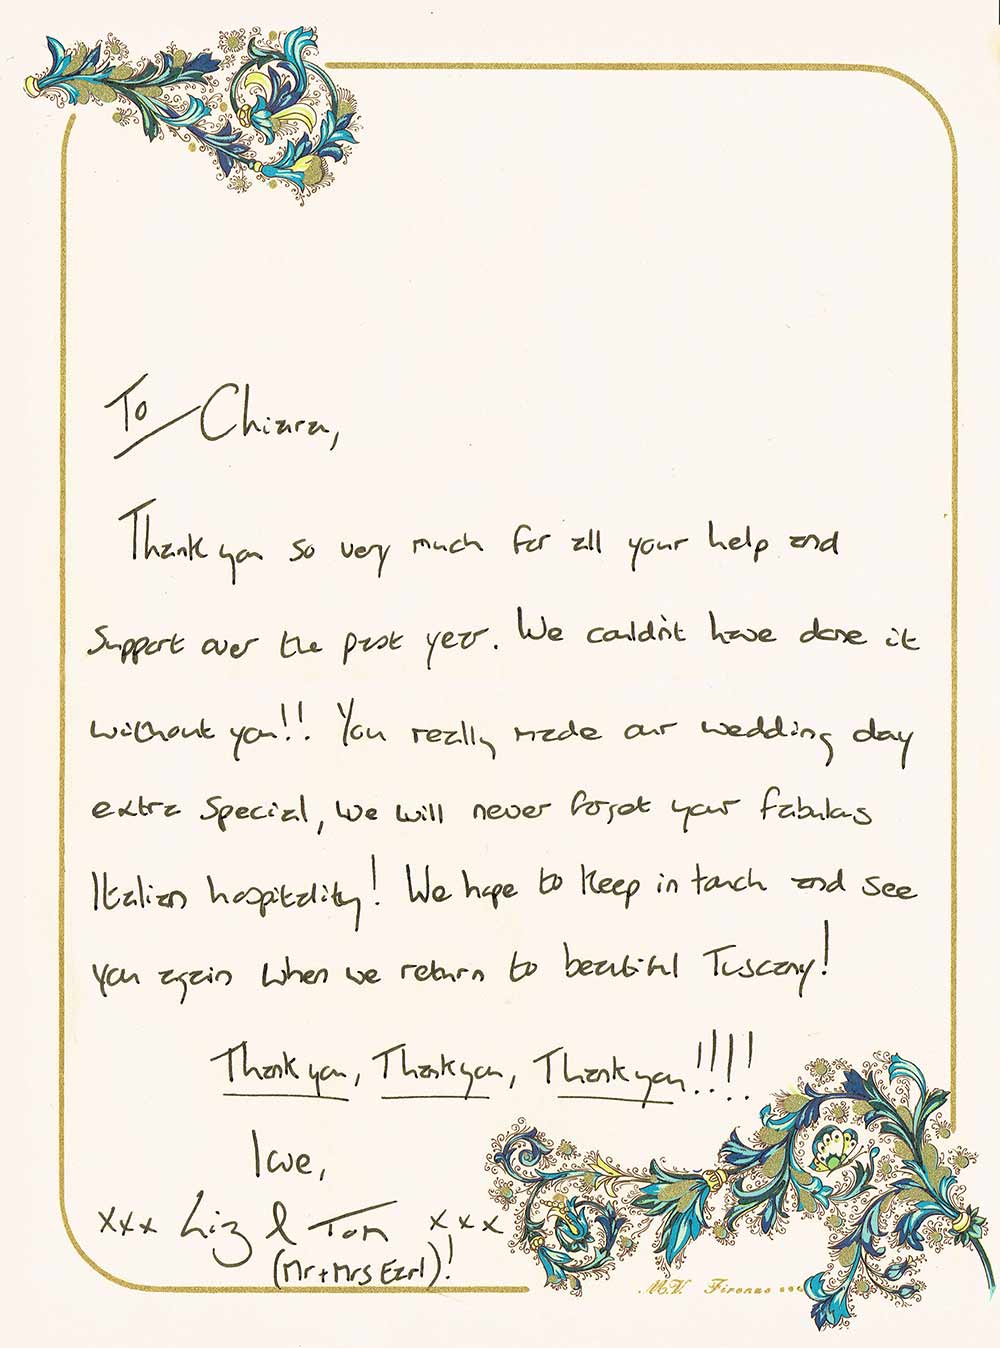 To Chiara,
Thank you so very much for all your help and
Support over the past year. We couldn't have done it
without you!! You really made our wedding day
extra special, we will never forget your fabulous
Italian hospitality! We hope to keep in touch and see
you again when we return to beautiful Tuscany!
Thank you, Thank you, Thank you!!!!
Love,
xxx Liz & Tom xxx
(Mr + Mrs Earl)!
M.V. Firenze